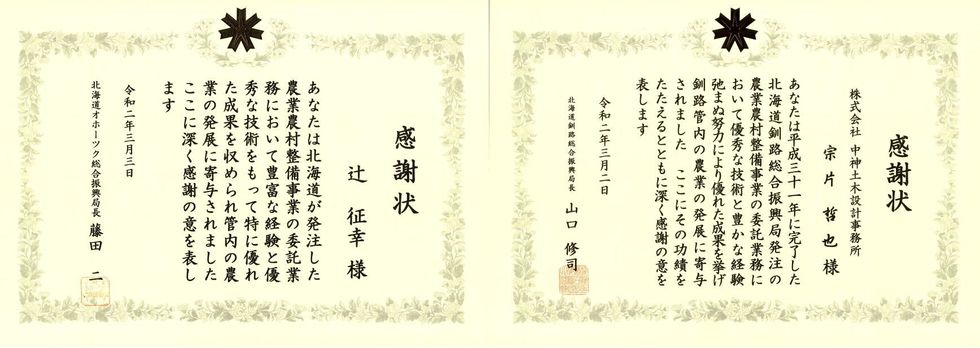 感謝状
株式会社 中神土木設計事務所
宗片 哲也 様
あなたは平成三十一年に完了した
北海道釧路総合振興局発注の
農業農村整備事業の委託業務に
おいて優秀な技術と豊かな経験
弛まぬ努力により優れた成果を挙げ
されました ここにその功績を
釧路管内の農業の発展に寄与
たたえるとともに深く感謝の意を
表します
令和二年三月二日
北海道釧路総合振興局長 山口 修司
感謝状
辻 征幸 様
あなたは北海道が発注した
農業農村整備事業の委託業
務において豊富な経験と優
秀な技術をもって特に優れ
た成果を収められ管内の農
業の発展に寄与されました
ここに深く感謝の意を表し
ます
令和二年三月三日
北海道オホーツク総合振興局長 藤田 二